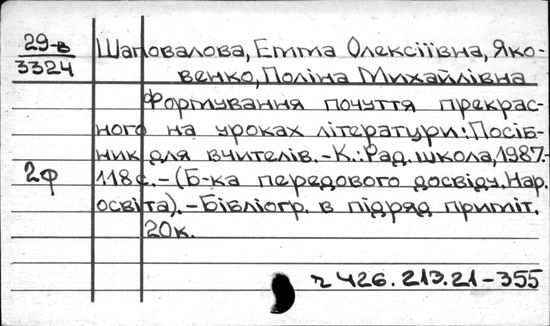 29-в
3324
Шаповалова, Емма Олексіївна, Яко-
венко, Поліна Михайлівна
Формування почуття прекрас-
ного на уроках літератури: Посіб-
ник для вчителів. - К.: Рад. школа, 1987.-
2ф
118с. - (Б-ка передового досвіду. Нар.
освіта). - Бібліогр. в підряд приміт.
20к.
ч 426. 213.21-355